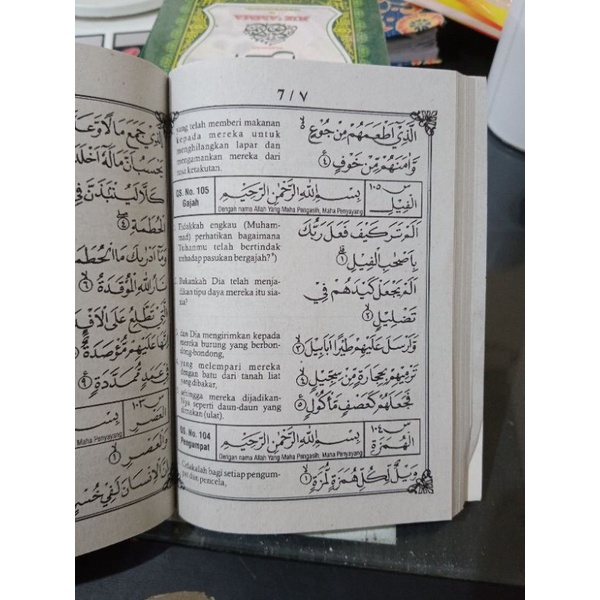 7 / ٧
yang telah memberi makanan
kepada mereka untuk
menghilangkan lapar dan
mengamankan mereka dari
rasa ketakutan.
الَّذِيْٓ اَطْعَمَهُمْ مِّنْ جُوْعٍ ەۙ
وَّاٰمَنَهُمْ مِّنْ خَوْفٍ ٤
QS. No. 105
Gajah
بِسْمِ اللّٰهِ الرَّحْمٰنِ الرَّحِيْمِ
Dengan nama Allah Yang Maha Pengasih, Maha Penyayang
س ١٠٥
الْفِيْلِ
Tidakkah engkau (Muham-
mad) perhatikan bagaimana
Tuhanmu telah bertindak
terhadap pasukan bergajah?*)
اَلَمْ تَرَ كَيْفَ فَعَلَ رَبُّكَ
بِاَصْحٰبِ الْفِيْلِۗ ١
Bukankah Dia telah menja-
dikan tipu daya mereka itu sia-
sia?
اَلَمْ يَجْعَلْ كَيْدَهُمْ فِيْ
تَضْلِيْلٍۙ ٢
dan Dia mengirimkan kepada
mereka burung yang berbon-
dong-bondong,
وَّاَرْسَلَ عَلَيْهِمْ طَيْرًا اَبَابِيْلَۙ ٣
yang melempari mereka
dengan batu dari tanah liat
yang dibakar,
تَرْمِيْهِمْ بِحِجَارَةٍ مِّنْ سِجِّيْلٍۙ ٤
sehingga mereka dijadikan-
Nya seperti daun-daun yang
dimakan (ulat).
فَجَعَلَهُمْ كَعَصْفٍ مَّأْكُوْلٍ ٥
QS. No. 104
Pengumpat
بِسْمِ اللّٰهِ الرَّحْمٰنِ الرَّحِيْمِ
Dengan nama Allah Yang Maha Pengasih, Maha Penyayang
س ١٠٤
الْهُمَزَةِ
Celakalah bagi setiap pengum-
pat dan pencela,
وَيْلٌ لِّكُلِّ هُمَزَةٍ لُّمَزَةٍۙ ١
الَّذِيْ جَمَعَ مَالًا وَّعَدَّ
يَحْسَبُ اَنَّ مَالَهٗٓ اَخْلَدَ
كَلَّا لَيُنْۢبَذَنَّ فِى
الْحُطَمَةِۖ ٤
وَمَآ اَدْرٰىكَ مَا الْحُطَمَ
نَارُ اللّٰهِ الْمُوْقَدَةُۙ ٦
الَّتِيْ تَطَّلِعُ عَلَى الْاَفْـِٕ
اِنَّهَا عَلَيْهِمْ مُّؤْصَدَةٌۙ
فِيْ عَمَدٍ مُّمَدَّدَةٍ ٩
س ١٠٣
العصر
بِسْمِ
وَالْعَصْرِۙ ١
اِنَّ الْاِنْسَانَ لَفِيْ خُسْرٍ